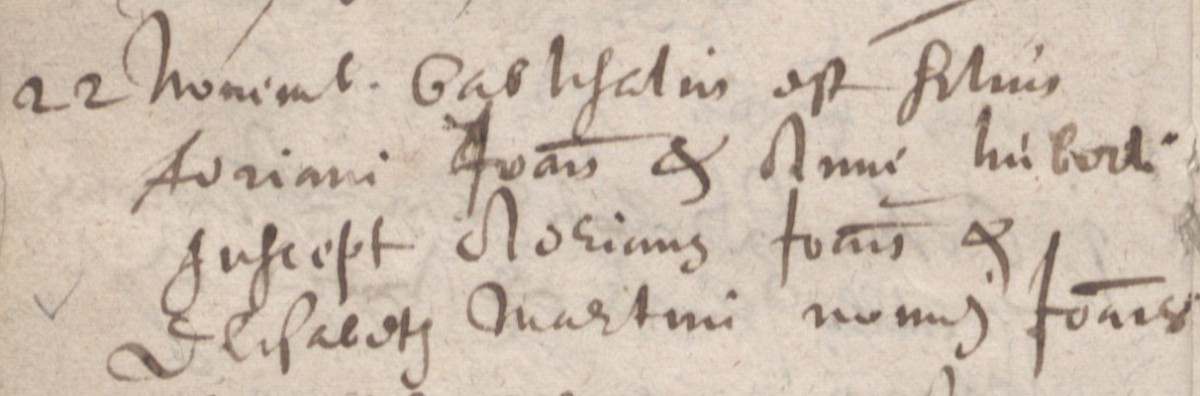 22 Novemb. baptisatus est filius
Adriani Joãis & Anne huberti
suscept Adrianus Joãis &
Elisabeth Martini nomen Joães